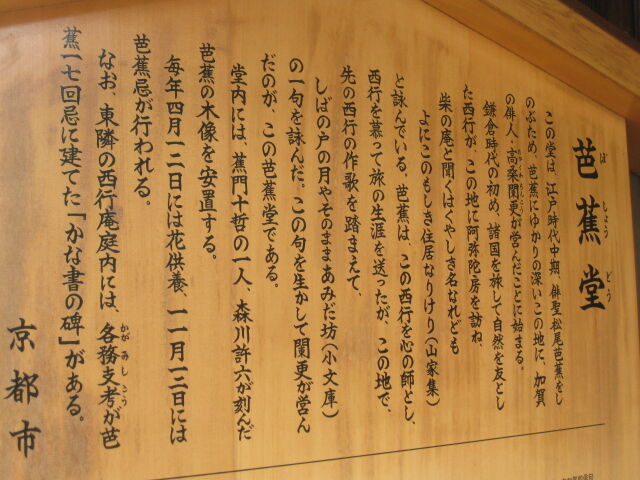 芭蕉堂
ばしょうどう
この堂は、江戸時代中期、俳聖松尾芭蕉をし
のぶため、芭蕉にゆかりの深いこの地に、加賀
の俳人・高桑闌更が営んだことに始まる。
たかくわらんこう
鎌倉時代の初め、諸国を旅して自然を友とし
た西行が、この地に阿弥陀房を訪ね、
柴の庵と聞くはくやしき名なれども
よにこのもしき住居なりけり(山家集)
と詠んでいる。芭蕉は、この西行を心の師とし、
西行を慕って旅の生涯を送ったが、この地で、
先の西行の作歌を踏まえて、
しばの戸の月やそのままあみだ坊(小文庫)
の一句を詠んだ。この句を生かして闌更が営ん
だのが、この芭蕉堂である。
堂内には、蕉門十哲の一人、森川許六が刻んだ
芭蕉の木像を安置する。
毎年四月一二日には花供養、一一月一二日には
芭蕉忌が行われる。
なお、東隣の西行庵庭内には、各務支考が芭
かがみしこう
蕉一七回忌に建てた「かな書の碑」がある。
京都市